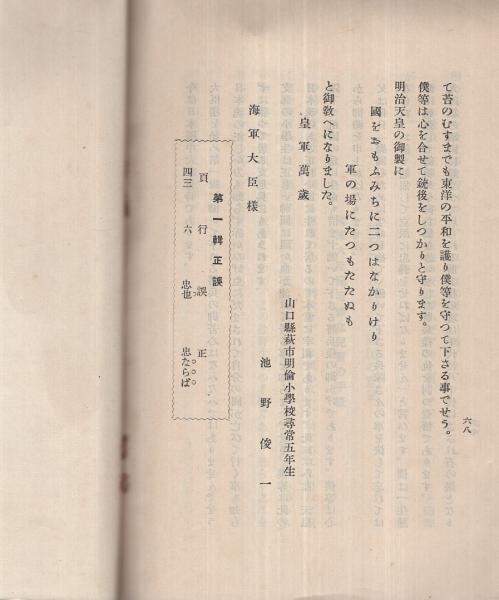 六八
て苔のむすまでも東洋の平和を護り僕等を守つて下さる事でせう。
僕等は心を合せて銃後をしつかりと守ります。
明治天皇の御製に
國をおもふみちに二つはなかりけり
軍の場にたつもたたぬも
と御敎へになりました。
皇軍萬歲
山口縣萩市明倫小學校尋常五年生
池野俊一
海軍大臣樣
第一輯正誤
頁 行 誤 正
四三 六 忠也 忠たらば